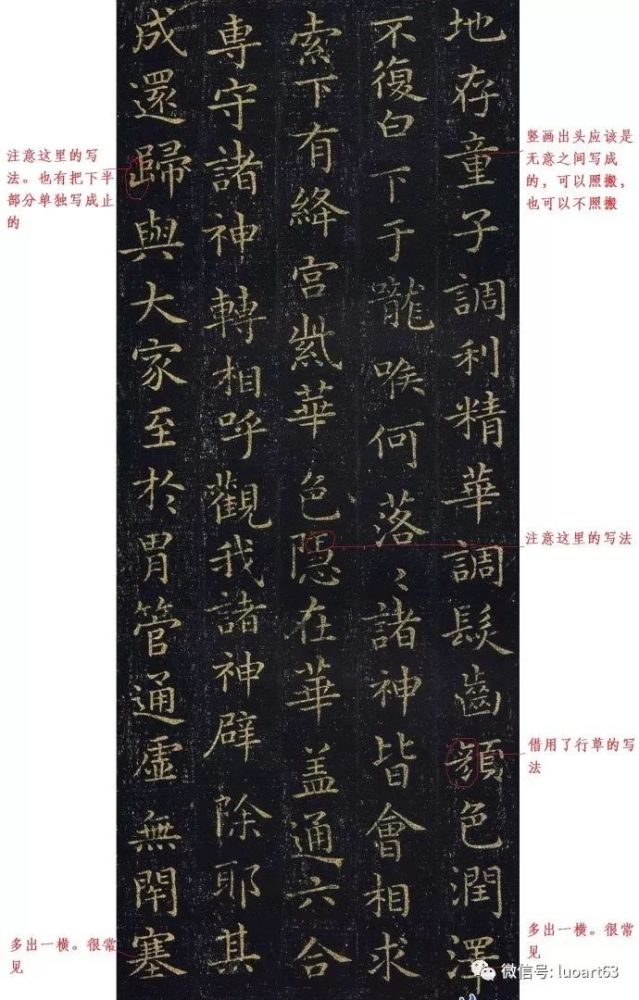 地存童子調利精華調髮齒顏色潤澤
不復白下于嚨喉何落〻諸神皆會相求
索下有絳宮紫華色隱在華盖通六合
専守諸神轉相呼觀我諸神辟除耶其
成還歸與大家至於胃管通虛無閉塞
竖画出头应该是
无意之间写成
的，可以照搬，
也可以不照搬
注意这里的写法
借用了行草的写
法
多出一横。很常
见
注意这里的写
法。也有把下半
部分单独写成止
的
多出一横。很常
见
微信号: luoart63